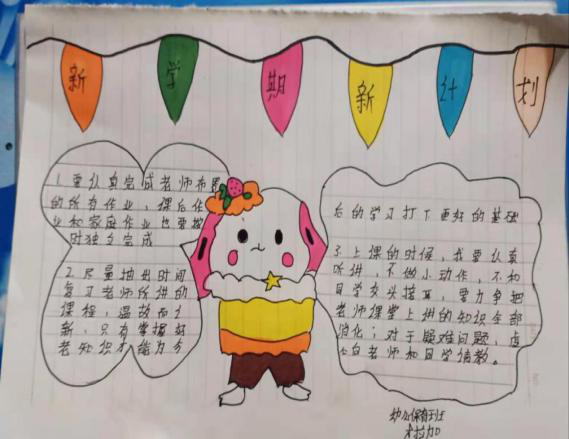 新学期新计划
1.要认真完成老师布置
的所有作业,课后作
业和家庭作业也要按
时独立完成
2.尽量抽出时间
复习老师所讲的
课程,温故而知
新,只有掌握好
老知识才能为今
后的学习打下更好的基础
3.上课的时候,我要认真
听讲,不做小动作,不和
同学交头接耳,要力争把
老师课堂上讲的知识全部
消化;对于疑难问题,虚
心向老师和同学请教。
幼儿保育班